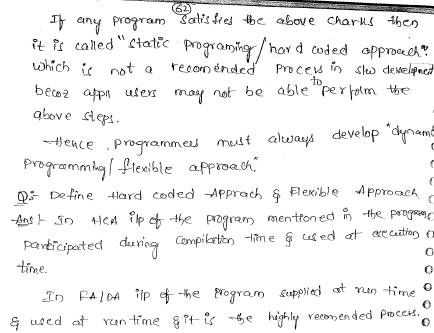 62
If any program satisfies the above charks then
it is called "static programing/hard coded approach".
which is not a recomended process in s/w development
becoz appn users may not be able to perform the
above steps.
Hence, programmers must always develop "dynami
programming/flexible approach."
Q:- Define Hard coded Apprach & Flexible Approach
Ans:- In HCA i/p of the program mentioned in the program
participated during compilation time & used at execution
time.
In FA/DA i/p of the program supplied at run time
& used at run time & it is the highly recomended process.